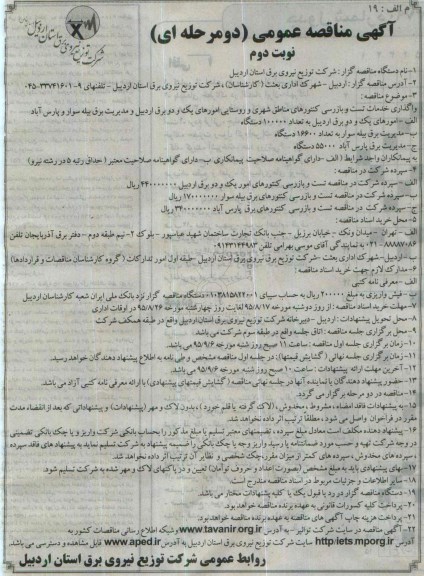 م الف: ۱۹
شرکت توزیع نیروی برق استان اردبیل
آگهی مناقصه عمومی (دومرحله ای)
نوبت دوم
۱-نام دستگاه مناقصه گزار: شرکت توزیع نیروی برق استان اردبیل
۲-آدرس مناقصه گزار: اردبیل - شهرک اداری بعثت (کارشناسان) ، شرکت توزیع نیروی برق استان اردبیل - تلفنهای ۹-۳۳۷۴۱۶۰۱-۰۴۵
۳-موضوع مناقصه:
واگذاری خدمات تست و بازرسی کنتورهای مناطق شهری و روستایی امورهای یک و دو برق اردبیل و مدیریت برق بیله سوار و پارس آباد
الف- امورهای یک و دو برق اردبیل به تعداد ۱۰۰۰۰۰ دستگاه
ب- مدیریت برق بیله سوار به تعداد ۱۶۶۰۰ دستگاه
ج- مدیریت برق پارس آباد ۵۵۰۰۰ دستگاه
به پیمانکاران واجد شرایط (الف -دارای گواهینامه صلاحیت پیمانکاری ب-دارای گواهینامه صلاحیت معتبر (حداقل رتبه ۵ در رشته نیرو)
۴-سپرده شرکت در مناقصه:
الف- سپرده شرکت در مناقصه تست و بازرسی کنتورهای امور یک و دو برق اردبیل ۴۴۰۰۰۰۰۰۰ ریال
ب- سپرده شرکت در مناقصه تست و بازرسی کنتورهای برق بیله سوار ۱۷۰۰۰۰۰۰۰ ریال
ج- سپرده شرکت در مناقصه تست و بازرسی کنتورهای برق پارس آباد ۳۴۰۰۰۰۰۰۰ ریال
۵-محل خرید اسناد مناقصه:
الف- تهران - میدان ونک - خیابان برزیل - جنب بانک تجارت ساختمان شهید عباسپور - بلوک ۲-نیم طبقه دوم - دفتر برق آذربایجان تلفن
۸۸۸۸۷۰۸۶-۰۲۱ به نمایندگی آقای موسی بهرامی تلفن ۰۹۱۴۳۱۴۴۹۸۳
ب- اردبیل-شهرک اداری بعثت -شرکت توزیع نیروی برق استان اردبیل -طبقه اول امور تدارکات (گروه کارشناسان مناقصات و قراردادها)
۶-مدارک لازم جهت خرید اسناد مناقصه:
الف- معرفی نامه کتبی
ب- فیش واریزی به مبلغ ۲۰۰۰۰۰ ریال به حساب سیبای ۰۱۰۳۸۱۵۸۲۲۰۰۱ دستگاه مناقصه گزار نزد بانک ملی ایران شعبه کارشناسان اردبیل
۷-مهلت خرید اسناد مناقصه: از روز دوشنبه مورخه ۹۵/۸/۱۷ لغایت روز چهارشنبه مورخه ۹۵/۸/۲۶ در اوقات اداری
۸-محل تحویل پیشنهادات: اردبیل -دبیرخانه شرکت توزیع نیروی برق استان اردبیل واقع در طبقه همکف شرکت
۹-محل برگزاری جلسه مناقصه: اتاق جلسه واقع در طبقه سوم شرکت می باشد.
۱۰-زمان برگزاری جلسه اول مناقصه: ساعت ۱۱ صبح روز شنبه مورخه ۹۵/۹/۶ می باشد.
۱۱-زمان برگزاری جلسه نهایی (گشایش قیمتها): در جلسه اول مناقصه مشخص و طی نامه به اطلاع پیشنهاد دهندگان خواهد رسید.
۱۲-آخرین مهلت ارائه پیشنهادات: ساعت ۱۰ صبح روز شنبه مورخه ۹۵/۹/۶ می باشد.
۱۳-حضور پیشنهاد دهندگان یا نماینده آنها در جلسه نهائی مناقصه (گشایش قیمتهای پیشنهادی) با ارائه معرفی نامه کتبی آزاد می باشد.
۱۴-مناقصه در دو مرحله برگزار می گردد.
۱۵-به پیشنهادات فاقد امضاء ، مشروط ، مخدوش ، (لاک گرفته یا قلم خورد) ، بدون لاک و مهر (پیشنهادات) و پیشنهاداتی که بعد از انقضاء مدت
مقرر در فراخوان واصل می شود ، مطلقاً ترتیب اثر داده نخواهد شد.
۱۶-پیشنهاد دهنده مکلف است معادل مبلغ سپرده ، تضمینهای معتبر تسلیم یا مبلغ مذکور را بحساب بانکی شرکت واریز و یا چک بانکی تضمینی
در وجه شرکت تهیه و حسب مورد ضمانتنامه یا رسید واریز وجه یا چک بانکی را ضمیمه پیشنهاد به شرکت تسلیم نماید به پیشنهاد های فاقد سپرده
، سپرده های مخدوش ، سپرده های کمتر از میزان مقرر، چک شخصی و نظایر آن ترتیب اثر داده نخواهد شد.
۱۷-بهای پیشنهادی باید به مبلغ مشخص (بصورت اعداد و حروف توأمان) تعیین و در پاکتهای لاک و مهر شده به شرکت تسلیم شود.
۱۸-سایر اطلاعات و جزئیات مربوط در اسناد مناقصه مندرج است.
۱۹-دستگاه مناقصه گزار در رد یا قبول یک یا کلیه پیشنهادات مختار می باشد.
۲۰-پرداخت کلیه کسورات قانونی به عهده برنده مناقصه خواهد بود.
۲۱-پرداخت هزینه چاپ آگهی های مناقصه به عهده برنده مناقصه خواهد بود.
۲۲-آگهی مناقصه در سایت شرکت توانیر به آدرس www.tavanir.org.ir و شبکه اطلاع رسانی مناقصات کشور به
آدرس http/iets.mporg.ir سایت شرکت توزیع نیروی برق استان اردبیل به آدرس www.aped.ir قابل مشاهده و دسترسی می باشد.
روابط عمومی شرکت توزیع نیروی برق استان اردبیل